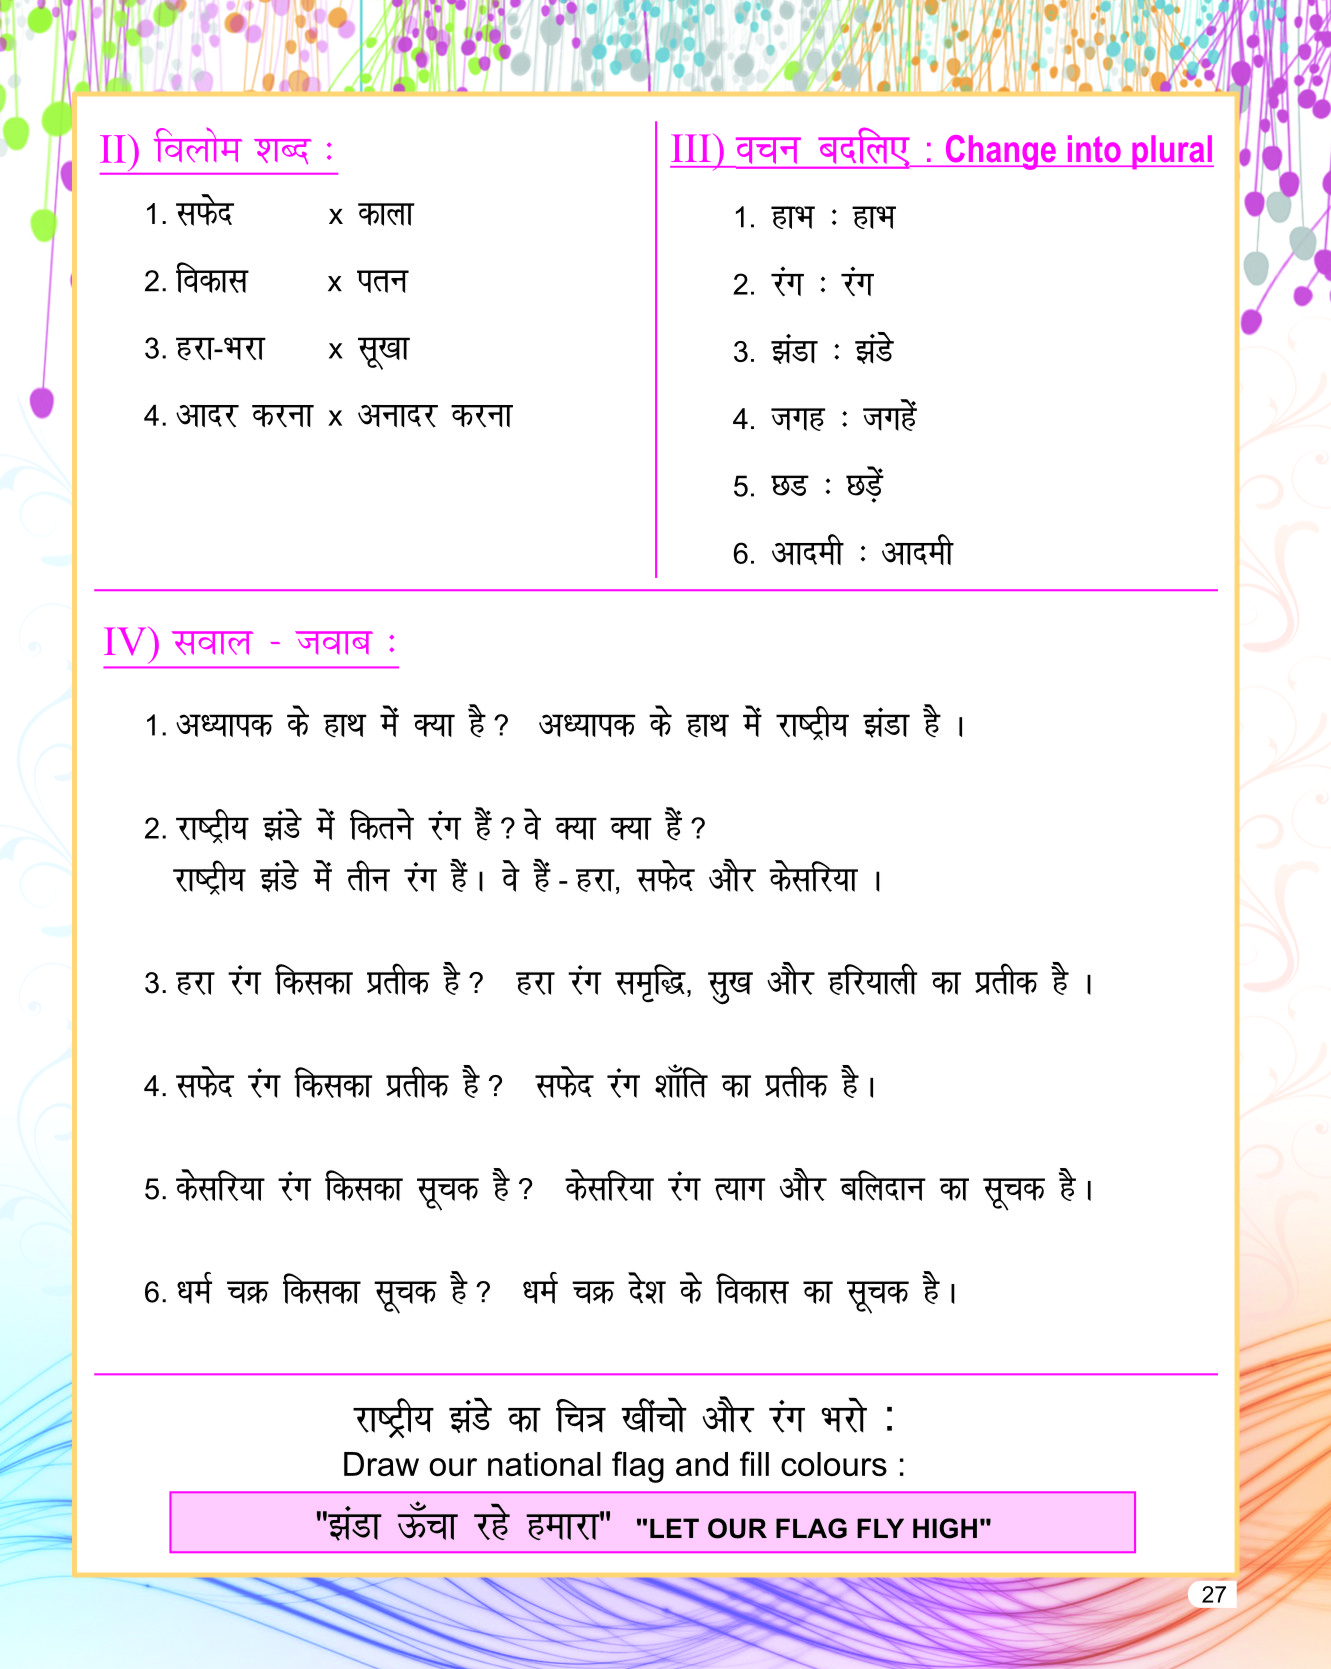 II) विलोम शब्द :
1. सफेद x काला
2. विकास x पतन
3. हरा-भरा x सूखा
4. आदर करना x अनादर करना
III) वचन बदलिए : Change into plural
1. हाभ : हाभ
2. रंग : रंग
3. झंडा : झंडे
4. जगह : जगहें
5. छड : छड़ें
6. आदमी : आदमी
IV) सवाल - जवाब :
1. अध्यापक के हाथ में क्या है ? अध्यापक के हाथ में राष्ट्रीय झंडा है ।
2. राष्ट्रीय झंडे में कितने रंग हैं ? वे क्या क्या हैं ?
राष्ट्रीय झंडे में तीन रंग हैं । वे हैं - हरा, सफेद और केसरिया ।
3. हरा रंग किसका प्रतीक है ? हरा रंग समृद्धि, सुख और हरियाली का प्रतीक है ।
4. सफेद रंग किसका प्रतीक है ? सफेद रंग शाँति का प्रतीक है ।
5. केसरिया रंग किसका सूचक है ? केसरिया रंग त्याग और बलिदान का सूचक है ।
6. धर्म चक्र किसका सूचक है ? धर्म चक्र देश के विकास का सूचक है ।
राष्ट्रीय झंडे का चित्र खींचो और रंग भरो :
Draw our national flag and fill colours :
"झंडा ऊँचा रहे हमारा" "LET OUR FLAG FLY HIGH"
27